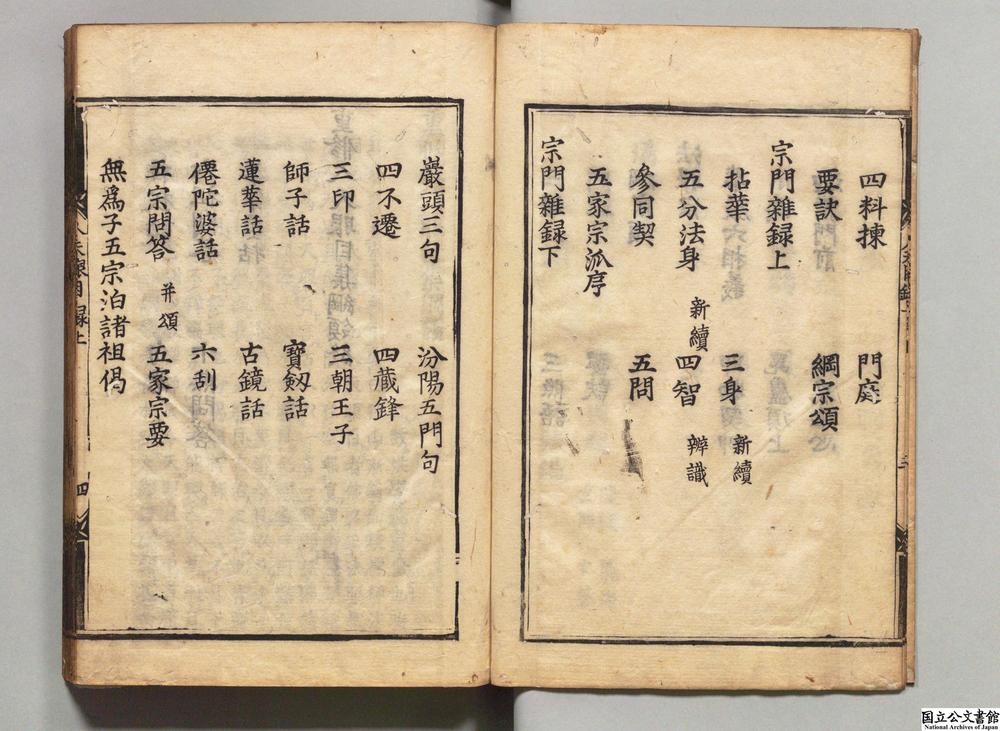 四料揀 門庭
要訣 綱宗頌
宗門雜録上
拈華 三身 新續
五分法身 新續 四智 辨識
參同契 五問
五家宗派序
宗門雜録下
巖頭三句 汾陽五門句
四不遷 四藏鋒
三印 三朝王子
師子話 寶劔話
蓮華話 古鏡話
僊陀婆話 六刮問答
五宗問答 并頌 五家宗要
無爲子五宗泊諸祖偈
四
国立公文書館
National Archives of Japan